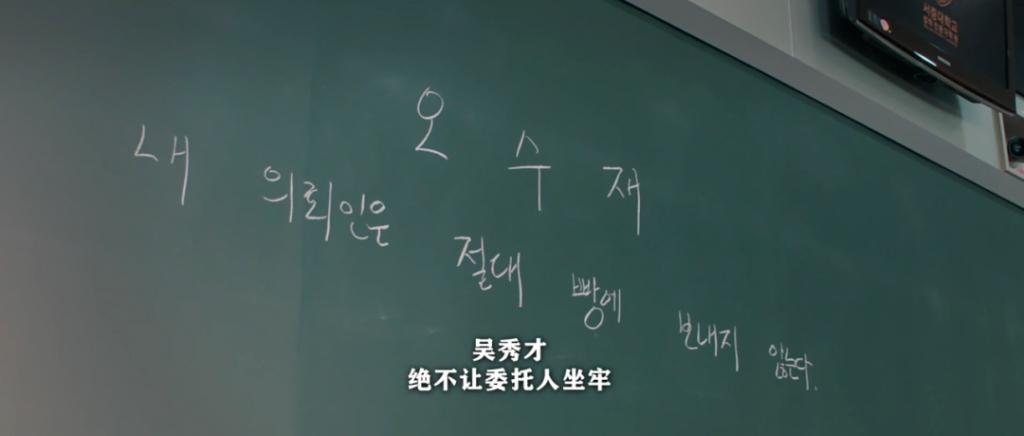 오수재
내 의뢰인은 절대 빵에 보내지 않는다.
吴秀才
绝不让委托人坐牢